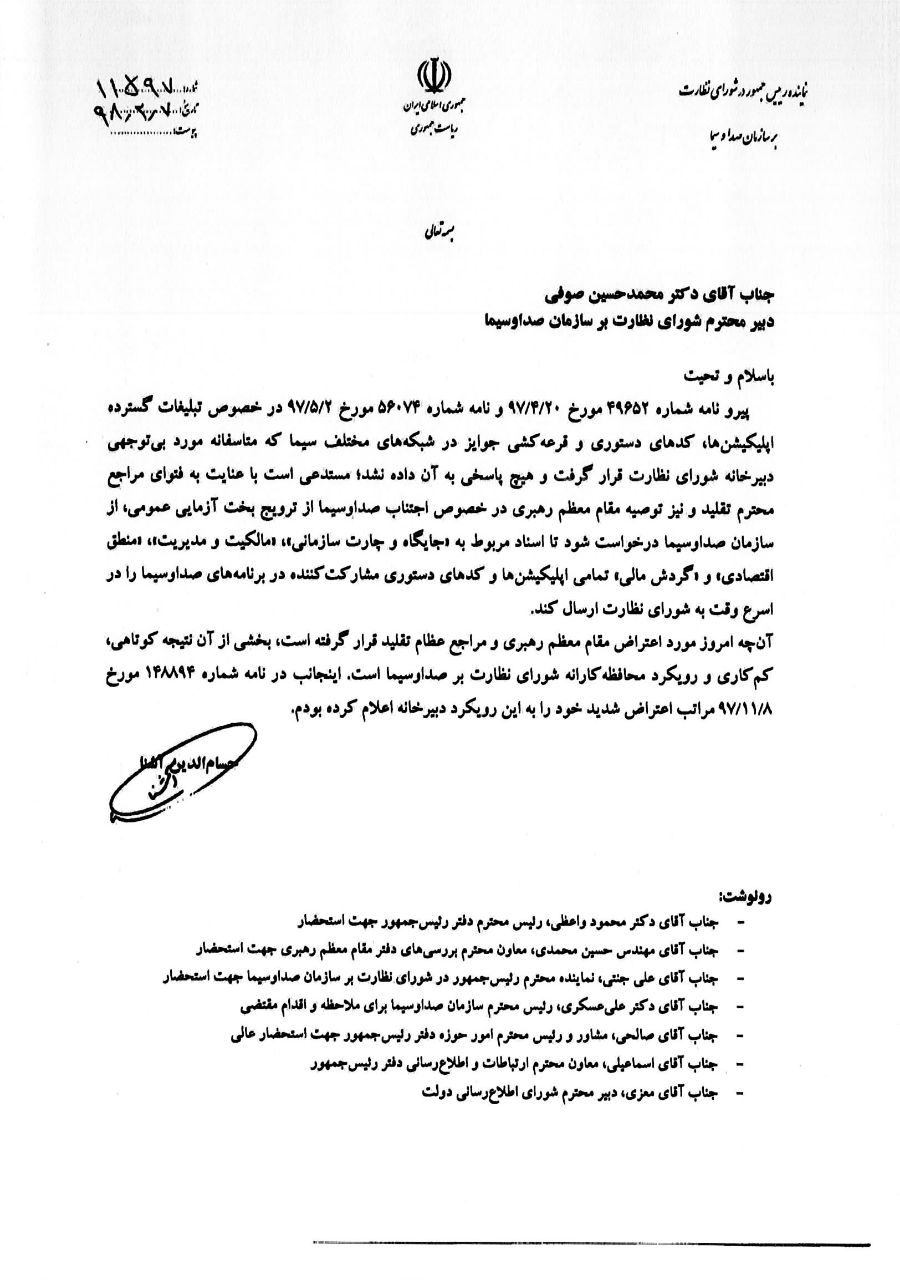 نماینده رییس جمهور در شورای نظارت
بر سازمان صدا و سیما
جمهوری اسلامی ایران
ریاست جمهوری
شماره: ۱۱۵۹۷
تاریخ: ۹۸.۲.۷
پیوست:
بسمه تعالی
جناب آقای دکتر محمدحسین صوفی
دبیر محترم شورای نظارت بر سازمان صداوسیما
باسلام و تحیت
پیرو نامه شماره ۴۹۶۵۲ مورخ ۹۷/۴/۲۰ و نامه شماره ۵۶۰۷۴ مورخ ۹۷/۵/۲ در خصوص تبلیغات گسترده
اپلیکیشن‌ها، کدهای دستوری و قرعه‌کشی جوایز در شبکه‌های مختلف سیما که متاسفانه مورد بی‌توجهی
دبیرخانه شورای نظارت قرار گرفت و هیچ پاسخی به آن داده نشد؛ مستدعی است با عنایت به فتوای مراجع
محترم تقلید و نیز توصیه مقام معظم رهبری در خصوص اجتناب صداوسیما از ترویج بخت آزمایی عمومی، از
سازمان صداوسیما درخواست شود تا اسناد مربوط به «جایگاه و چارت سازمانی»، «مالکیت و مدیریت»، «منطق
اقتصادی» و «گردش مالی» تمامی اپلیکیشن‌ها و کدهای دستوری مشارکت‌کننده در برنامه‌های صداوسیما را در
اسرع وقت به شورای نظارت ارسال کند.
آن‌چه امروز مورد اعتراض مقام معظم رهبری و مراجع عظام تقلید قرار گرفته است، بخشی از آن نتیجه کوتاهی،
کم‌کاری و رویکرد محافظه‌کارانه شورای نظارت بر صداوسیما است. اینجانب در نامه شماره ۱۴۸۸۹۴ مورخ
۹۷/۱۱/۸ مراتب اعتراض شدید خود را به این رویکرد دبیرخانه اعلام کرده بودم.
حسام‌الدین آشنا
آشنا
رونوشت:
- جناب آقای دکتر محمود واعظی، رئیس محترم دفتر رئیس‌جمهور جهت استحضار
- جناب آقای مهندس حسین محمدی، معاون محترم بررسی‌های دفتر مقام معظم رهبری جهت استحضار
- جناب آقای علی جنتی، نماینده محترم رئیس‌جمهور در شورای نظارت بر سازمان صداوسیما جهت استحضار
- جناب آقای دکتر علی‌عسکری، رئیس محترم سازمان صداوسیما برای ملاحظه و اقدام مقتضی
- جناب آقای صالحی، مشاور و رئیس محترم امور حوزه دفتر رئیس‌جمهور جهت استحضار عالی
- جناب آقای اسماعیلی، معاون محترم ارتباطات و اطلاع‌رسانی دفتر رئیس‌جمهور
- جناب آقای معزی، دبیر محترم شورای اطلاع‌رسانی دولت